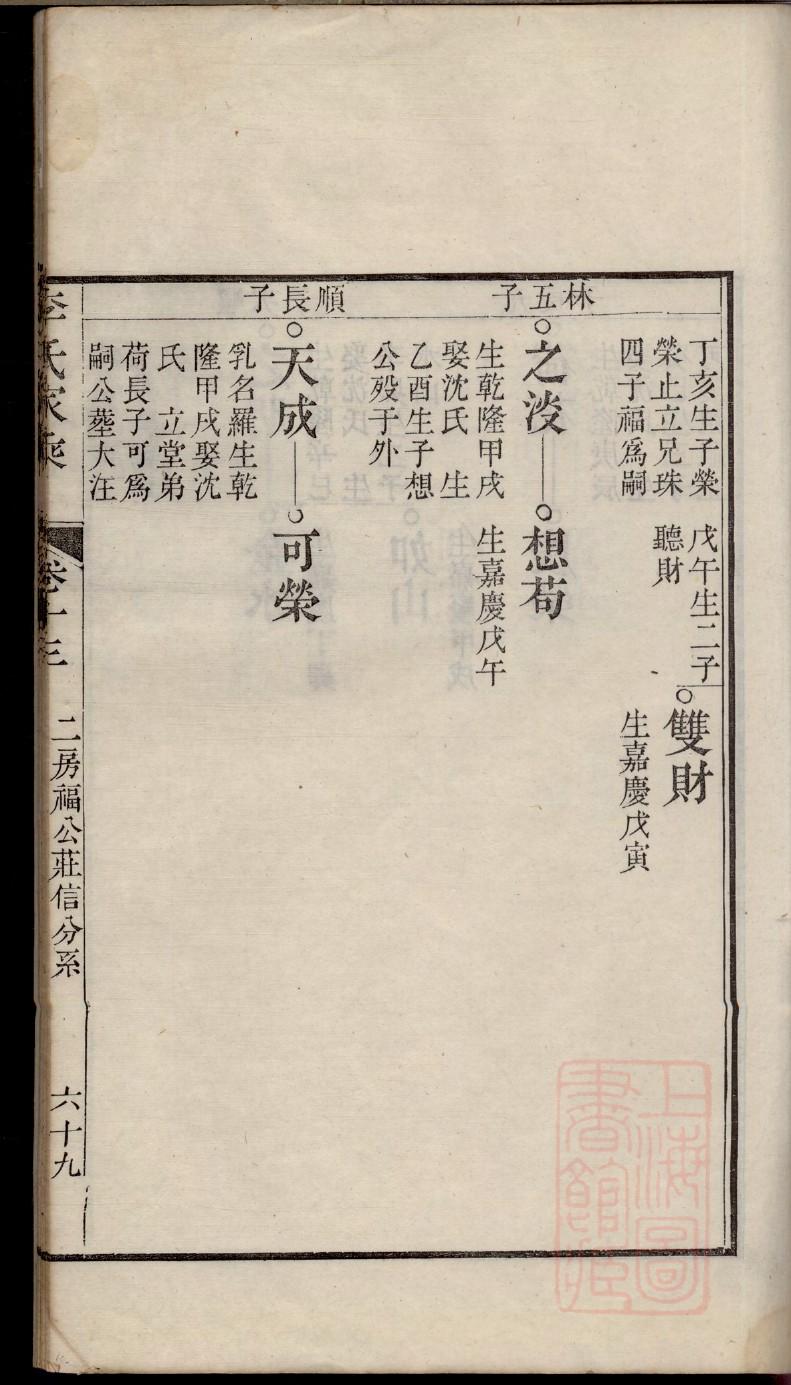 丁亥生子榮
榮止立兄珠
四子福爲嗣
戊午生二子
聽財
雙財
生嘉慶戊寅
子五林
之
想苟
生乾隆甲戌
娶沈氏 生
乙酉生子想
公歿于外
生嘉慶戊午
子長順
天成
可榮
乳名羅生乾
隆甲戌娶沈
氏 立堂弟
荷長子可爲
嗣公塟大汪
李氏家乘
卷十三
二房福公莊信分系
六十九
上海圖書館藏